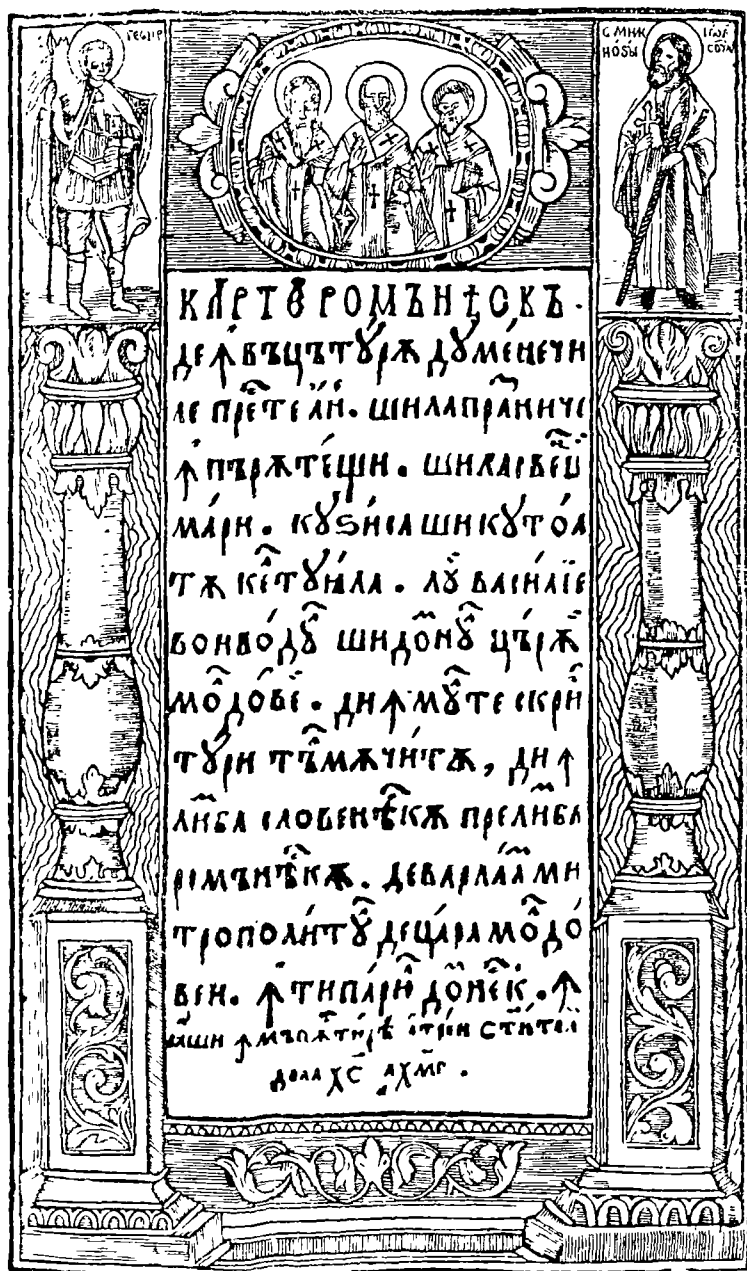 КАРТЄ РОМЪНѢСКЪ·
ДЕꙞВЪЦЪТꙋ́РѪ ДꙋМЕ́НЕЧИ
ЛЕ ПРЕⷭ҇ТЕ А́Н҇. ШИЛАПРАⷥ҇НИЧЕ
ꙞПЪРѪТЕ́ЩИ. ШИЛАСВЕН҇Ц
МА́РИ. КꙋЅИ́СА ШИКꙋТО́А
ТѪ КЕⷧ҇ТꙋИ́АЛА. ЛꙋЙ ВАСИЛІЕ
ВОИВО́Дꙋⷧ҇ ШИДО́Мⷩ҇Нꙋⷧ҇ ЦЪ́РѪЙ
МОⷧ҇ДО́ВЕЙ. ДИꙞМꙋⷧ҇ТЕ СКРИ́П
ТꙋРИ ТЪⷧ҇МѪЧИ́ТѪ, ДИꙞ
ЛИⷨ҇БА СЛОВЕНѢⷭ҇КѪ ПРЕЛИⷨ҇БА
РОМЪНѢⷭ҇КѪ. ДЕВАРЛАА́М МИ
ТРОПОЛИ́Тꙋⷧ҇ ДЕЦА́РА МОⷧ҇ДО́
ВЕИ. ꙞТИПА́РЮⷧ҇ ДОⷨ҇НЕ́СК. Ꙟ
ꙖШИ ꙞМЪНѪСТИ́РѢ А ТРЕ́И СТИ́ТЕЛИ
ДЕЛА ХС҃ ҂АХМГ.